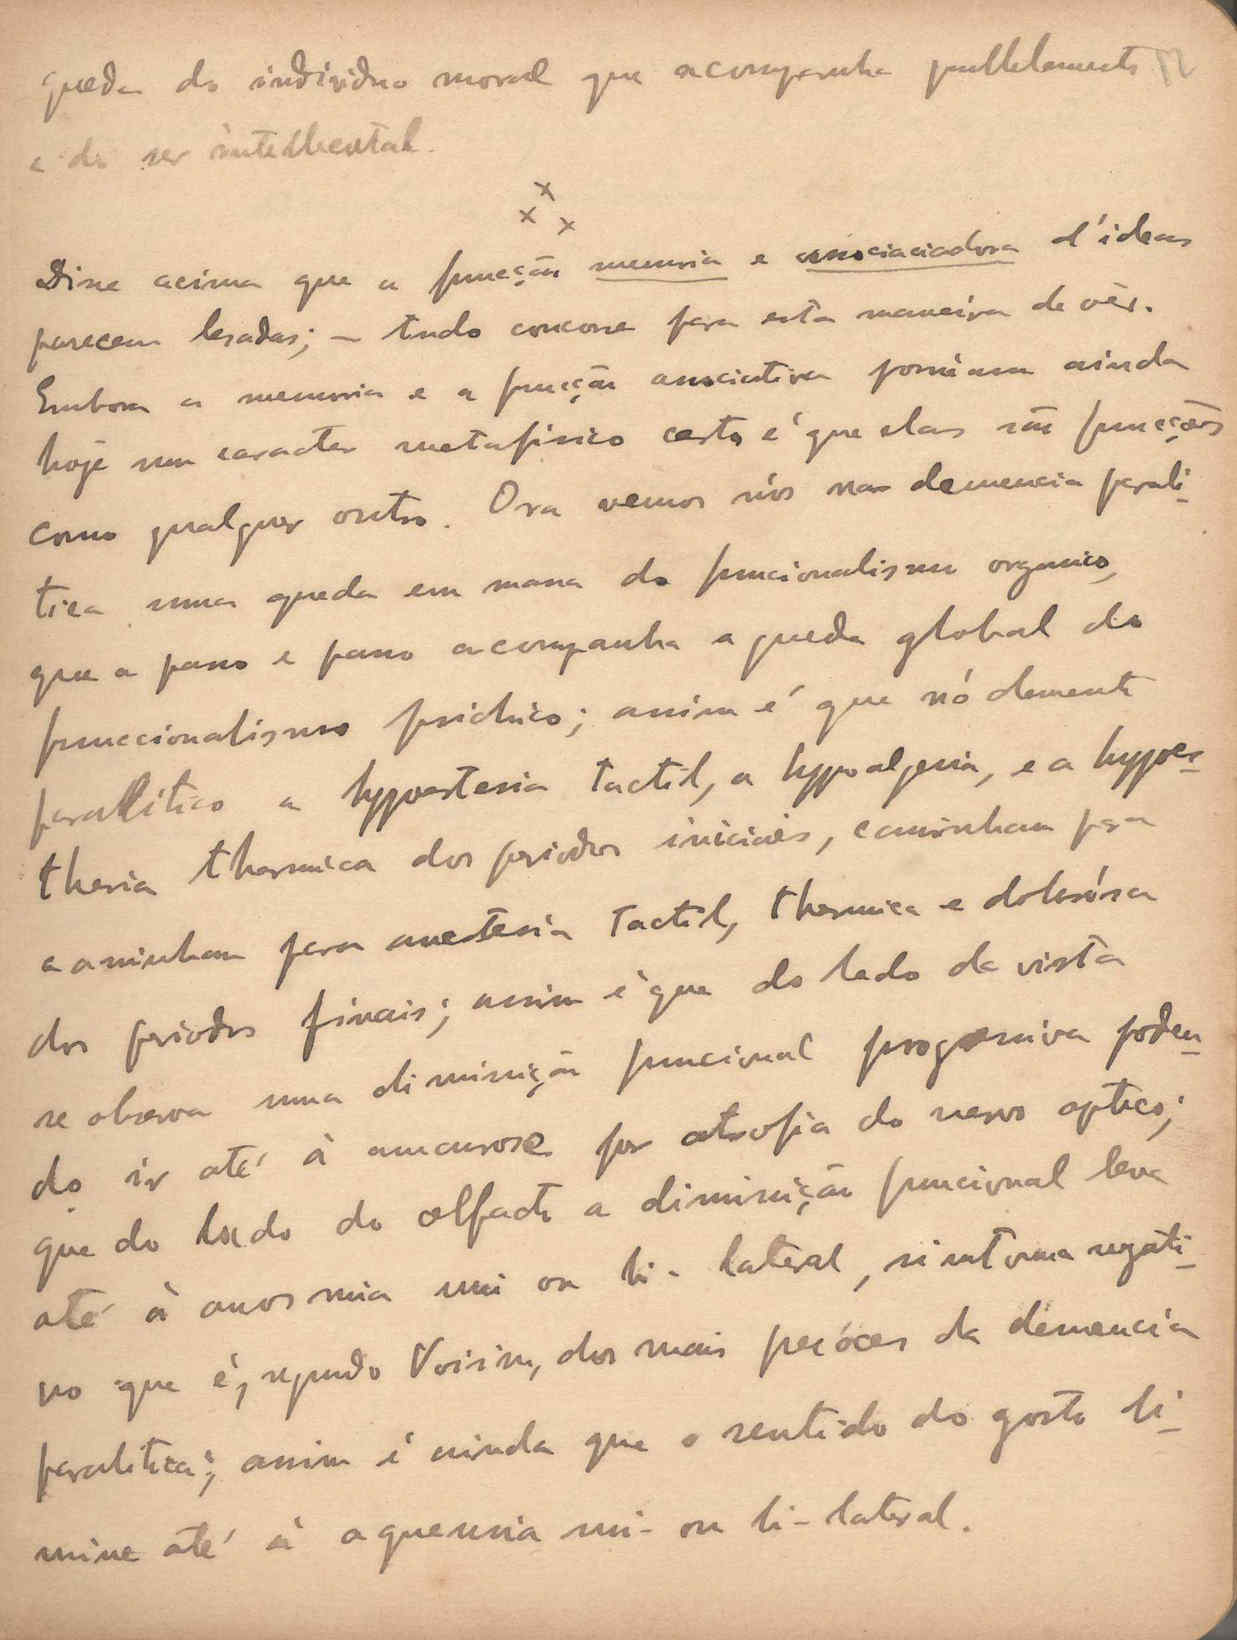 queda do individuo moral que acompanha parallelamente
a do ser intellectual.
x
x x
Disse acima que a funcção memoria e associaciadora d'ideas
parecem lesadas; – tudo concorre para esta maneira de vêr.
Embora a memoria e a funcção associativa possuam ainda
hoje um caracter metafisico certo é que elas são funcções
como qualquer outro. Ora vemos nós na demencia parali-
tica uma queda em massa do funcionalismo organico,
que a passo e passo acompanha a queda global do
funccionalismo psichico; assim é que nó demente
paralitico a hypoestesia tactil, a hypoalgesia, e a hypoes-
thesia thermica dos periodos iniciaes, caminham para
caminham para anestesia tactil, thermica e dolorósa
dos periodos finais; assim é que do lado da vista
se observa uma diminuição funcional progressiva poden-
do ir até à amaurose por atrofia do nervo optico;
que do lado do olfacto a diminuição funcional leva
até à anosmia uni ou bi-lateral, sintoma negati-
vo que é, segundo Voisin, dos mais precóces da demencia
paralitica; assim é ainda que o sentido do gosto di-
minue até à aguensia uni- ou bi-lateral.